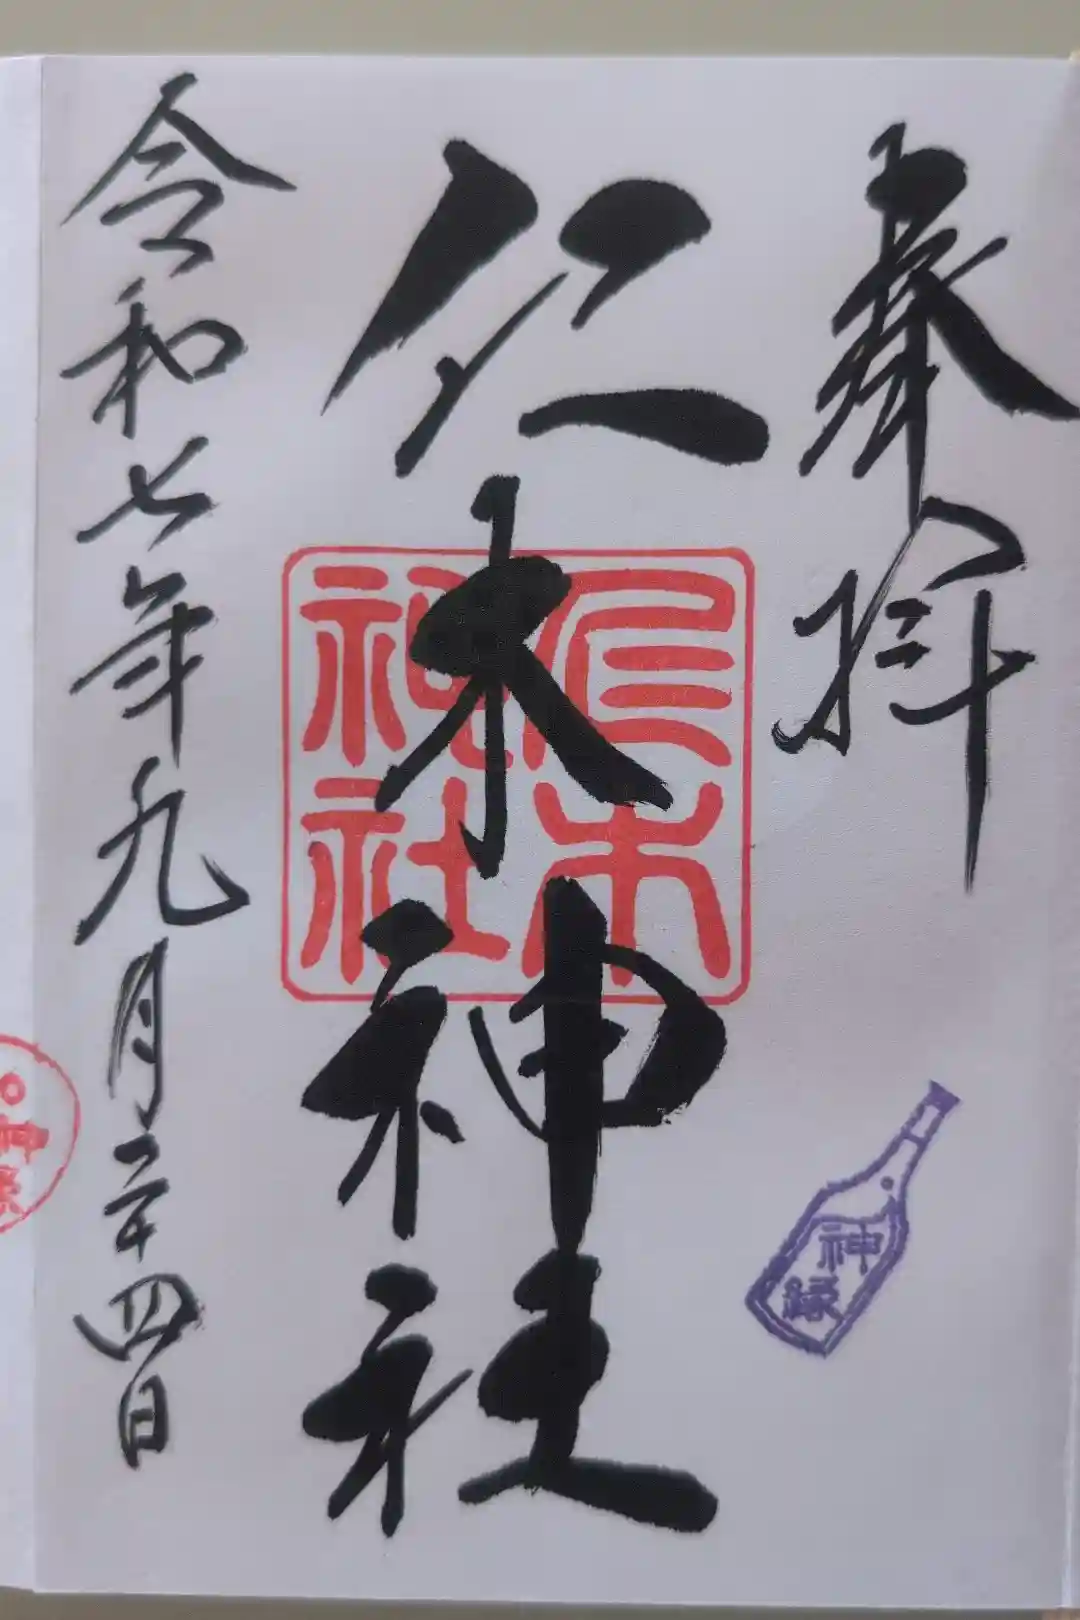 奉拝
仁木神社
仁木
神社
令和七年九月二十四日
神
縁